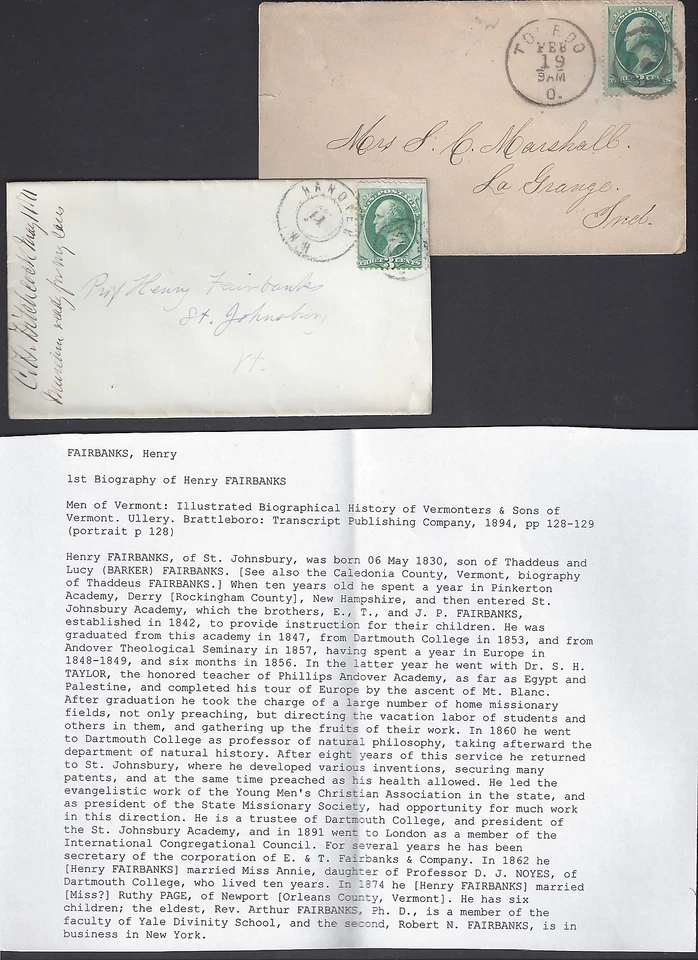 TOLEDO
FEB
19
9AM
O.
U.S. POSTAGE
THREE CENTS
Mrs S. C. Marshall.
La Grange.
Ind.
HANOVER
N.H.
U.S. POSTAGE
THREE CENTS
Prof Henry Fairbanks
St. Johnsbury
Vt.
C. H. Hitchcock
Museum ready for my
FAIRBANKS, Henry
1st Biography of Henry FAIRBANKS
Men of Vermont: Illustrated Biographical History of Vermonters & Sons of
Vermont. Ullery. Brattleboro: Transcript Publishing Company, 1894, pp 128-129
(portrait p 128)
Henry FAIRBANKS, of St. Johnsbury, was born 06 May 1830, son of Thaddeus and
Lucy (BARKER) FAIRBANKS. [See also the Caledonia County, Vermont, biography
of Thaddeus FAIRBANKS.] When ten years old he spent a year in Pinkerton
Academy, Derry [Rockingham County], New Hampshire, and then entered St.
Johnsbury Academy, which the brothers, E., T., and J. P. FAIRBANKS,
established in 1842, to provide instruction for their children. He was
graduated from this academy in 1847, from Dartmouth College in 1853, and from
Andover Theological Seminary in 1857, having spent a year in Europe in
1848-1849, and six months in 1856. In the latter year he went with Dr. S. H.
TAYLOR, the honored teacher of Phillips Andover Academy, as far as Egypt and
Palestine, and completed his tour of Europe by the ascent of Mt. Blanc.
After graduation he took the charge of a large number of home missionary
fields, not only preaching, but directing the vacation labor of students and
others in them, and gathering up the fruits of their work. In 1860 he went
to Dartmouth College as professor of natural philosophy, taking afterward the
department of natural history. After eight years of this service he returned
to St. Johnsbury, where he developed various inventions, securing many
patents, and at the same time preached as his health allowed. He led the
evangelistic work of the Young Men's Christian Association in the state, and
as president of the State Missionary Society, had opportunity for much work
in this direction. He is a trustee of Dartmouth College, and president of
the St. Johnsbury Academy, and in 1891 went to London as a member of the
International Congregational Council. For several years he has been
secretary of the corporation of E. & T. Fairbanks & Company. In 1862 he
[Henry FAIRBANKS] married Miss Annie, daughter of Professor D. J. NOYES, of
Dartmouth College, who lived ten years. In 1874 he [Henry FAIRBANKS] married
[Miss?] Ruthy PAGE, of Newport [Orleans County, Vermont]. He has six
children; the eldest, Rev. Arthur FAIRBANKS, Ph. D., is a member of the
faculty of Yale Divinity School, and the second, Robert N. FAIRBANKS, is in
business in New York.